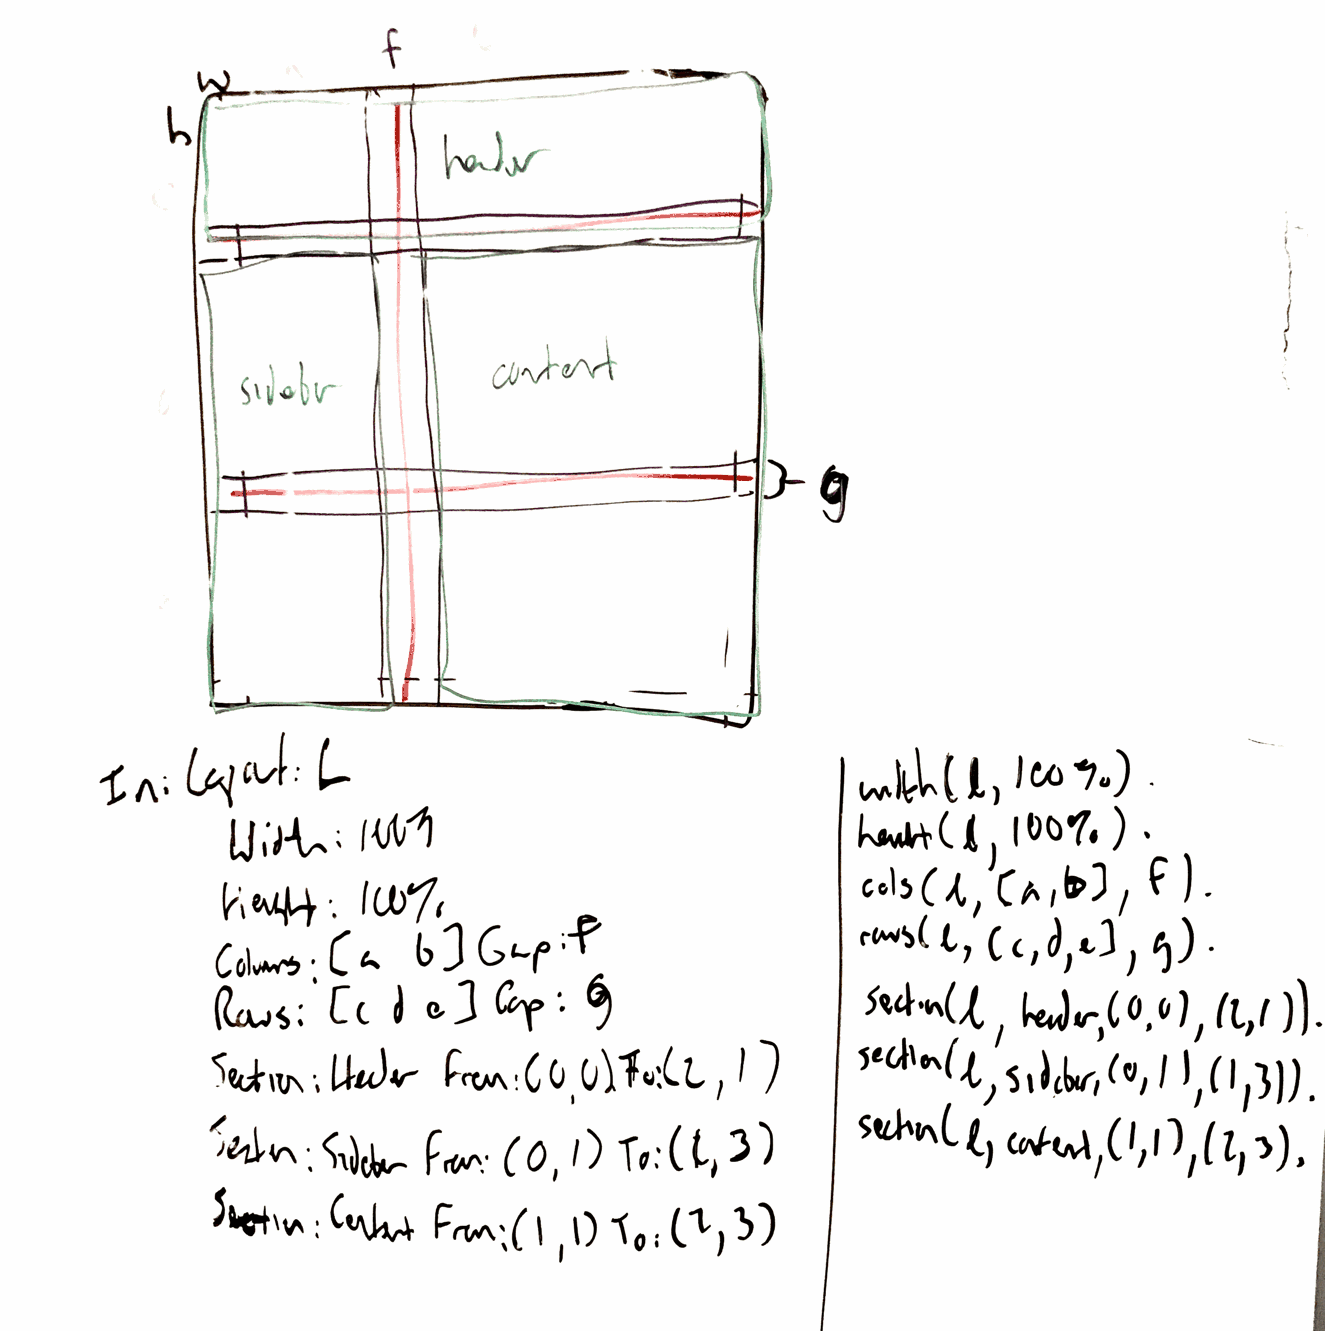 f
w
h
header
sidebar
content
g
In: Layout: L
Width: 100%
Height: 100%
Columns: [a b] Gap: f
Rows: [c d e] Gap: g
Section: Header From: (0,0) To: (2,1)
Section: Sidebar From: (0,1) To: (1,3)
Section: Content From: (1,1) To: (2,3)
width(l, 100%).
height(l, 100%).
cols(l, [a,b], f).
rows(l, [c,d,e], g).
section(l, header, (0,0), (2,1)).
section(l, sidebar, (0,1), (1,3)).
section(l, content, (1,1), (2,3).